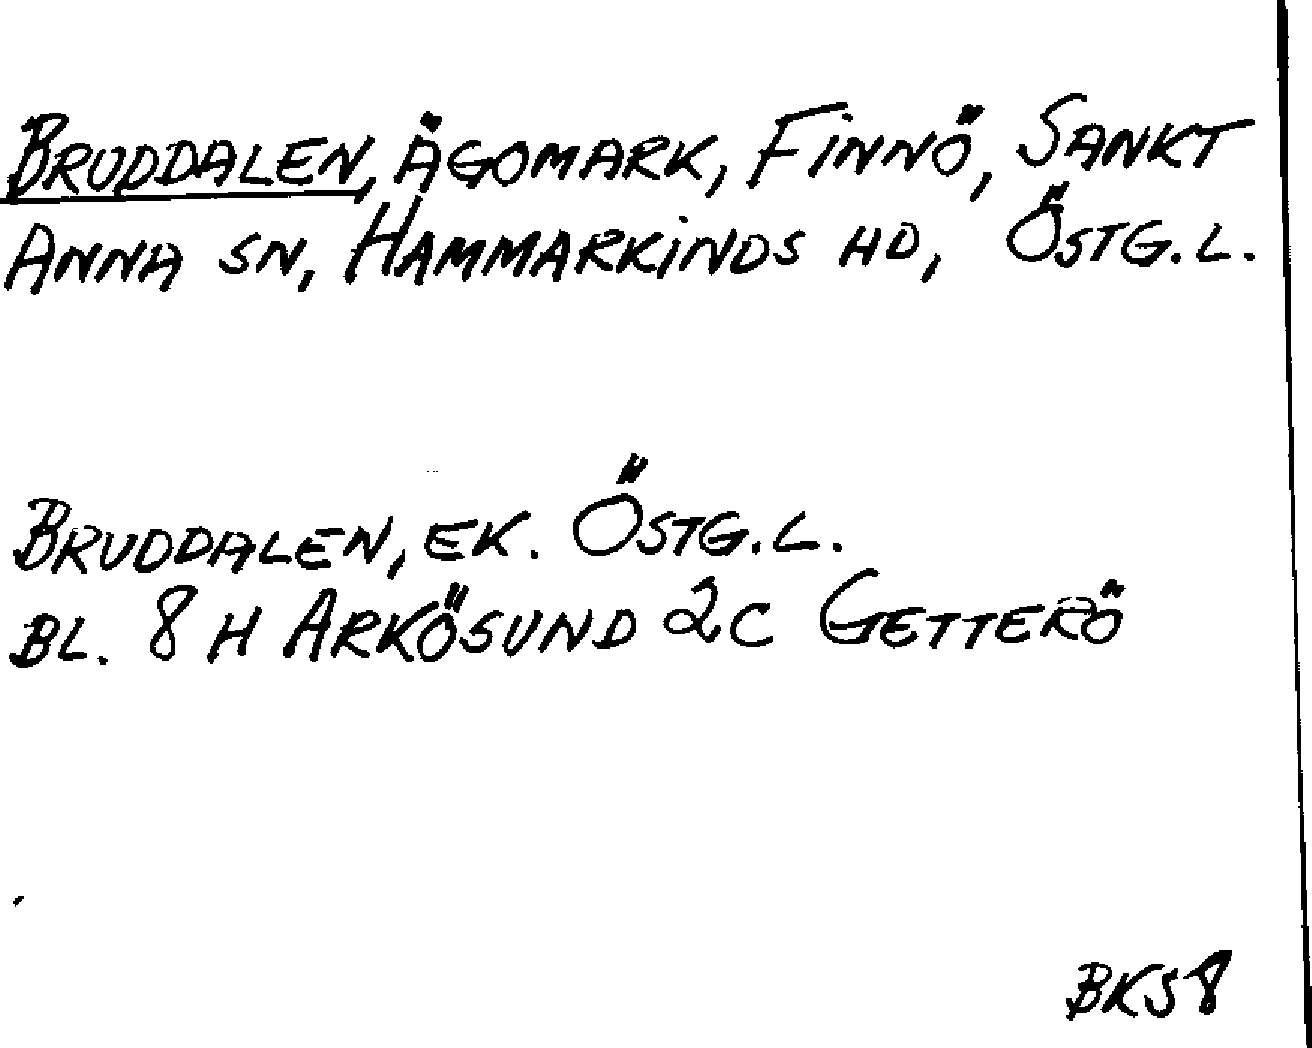 BRUDDALEN, ÄGOMARK, FINNÖ, SANKT
ANNA SN, HAMMARKINDS HD, ÖSTG.L.
BRUDDALEN, EK. ÖSTG.L.
BL. 8 H ARKÖSUND 2C GETTERÖ
BKS8